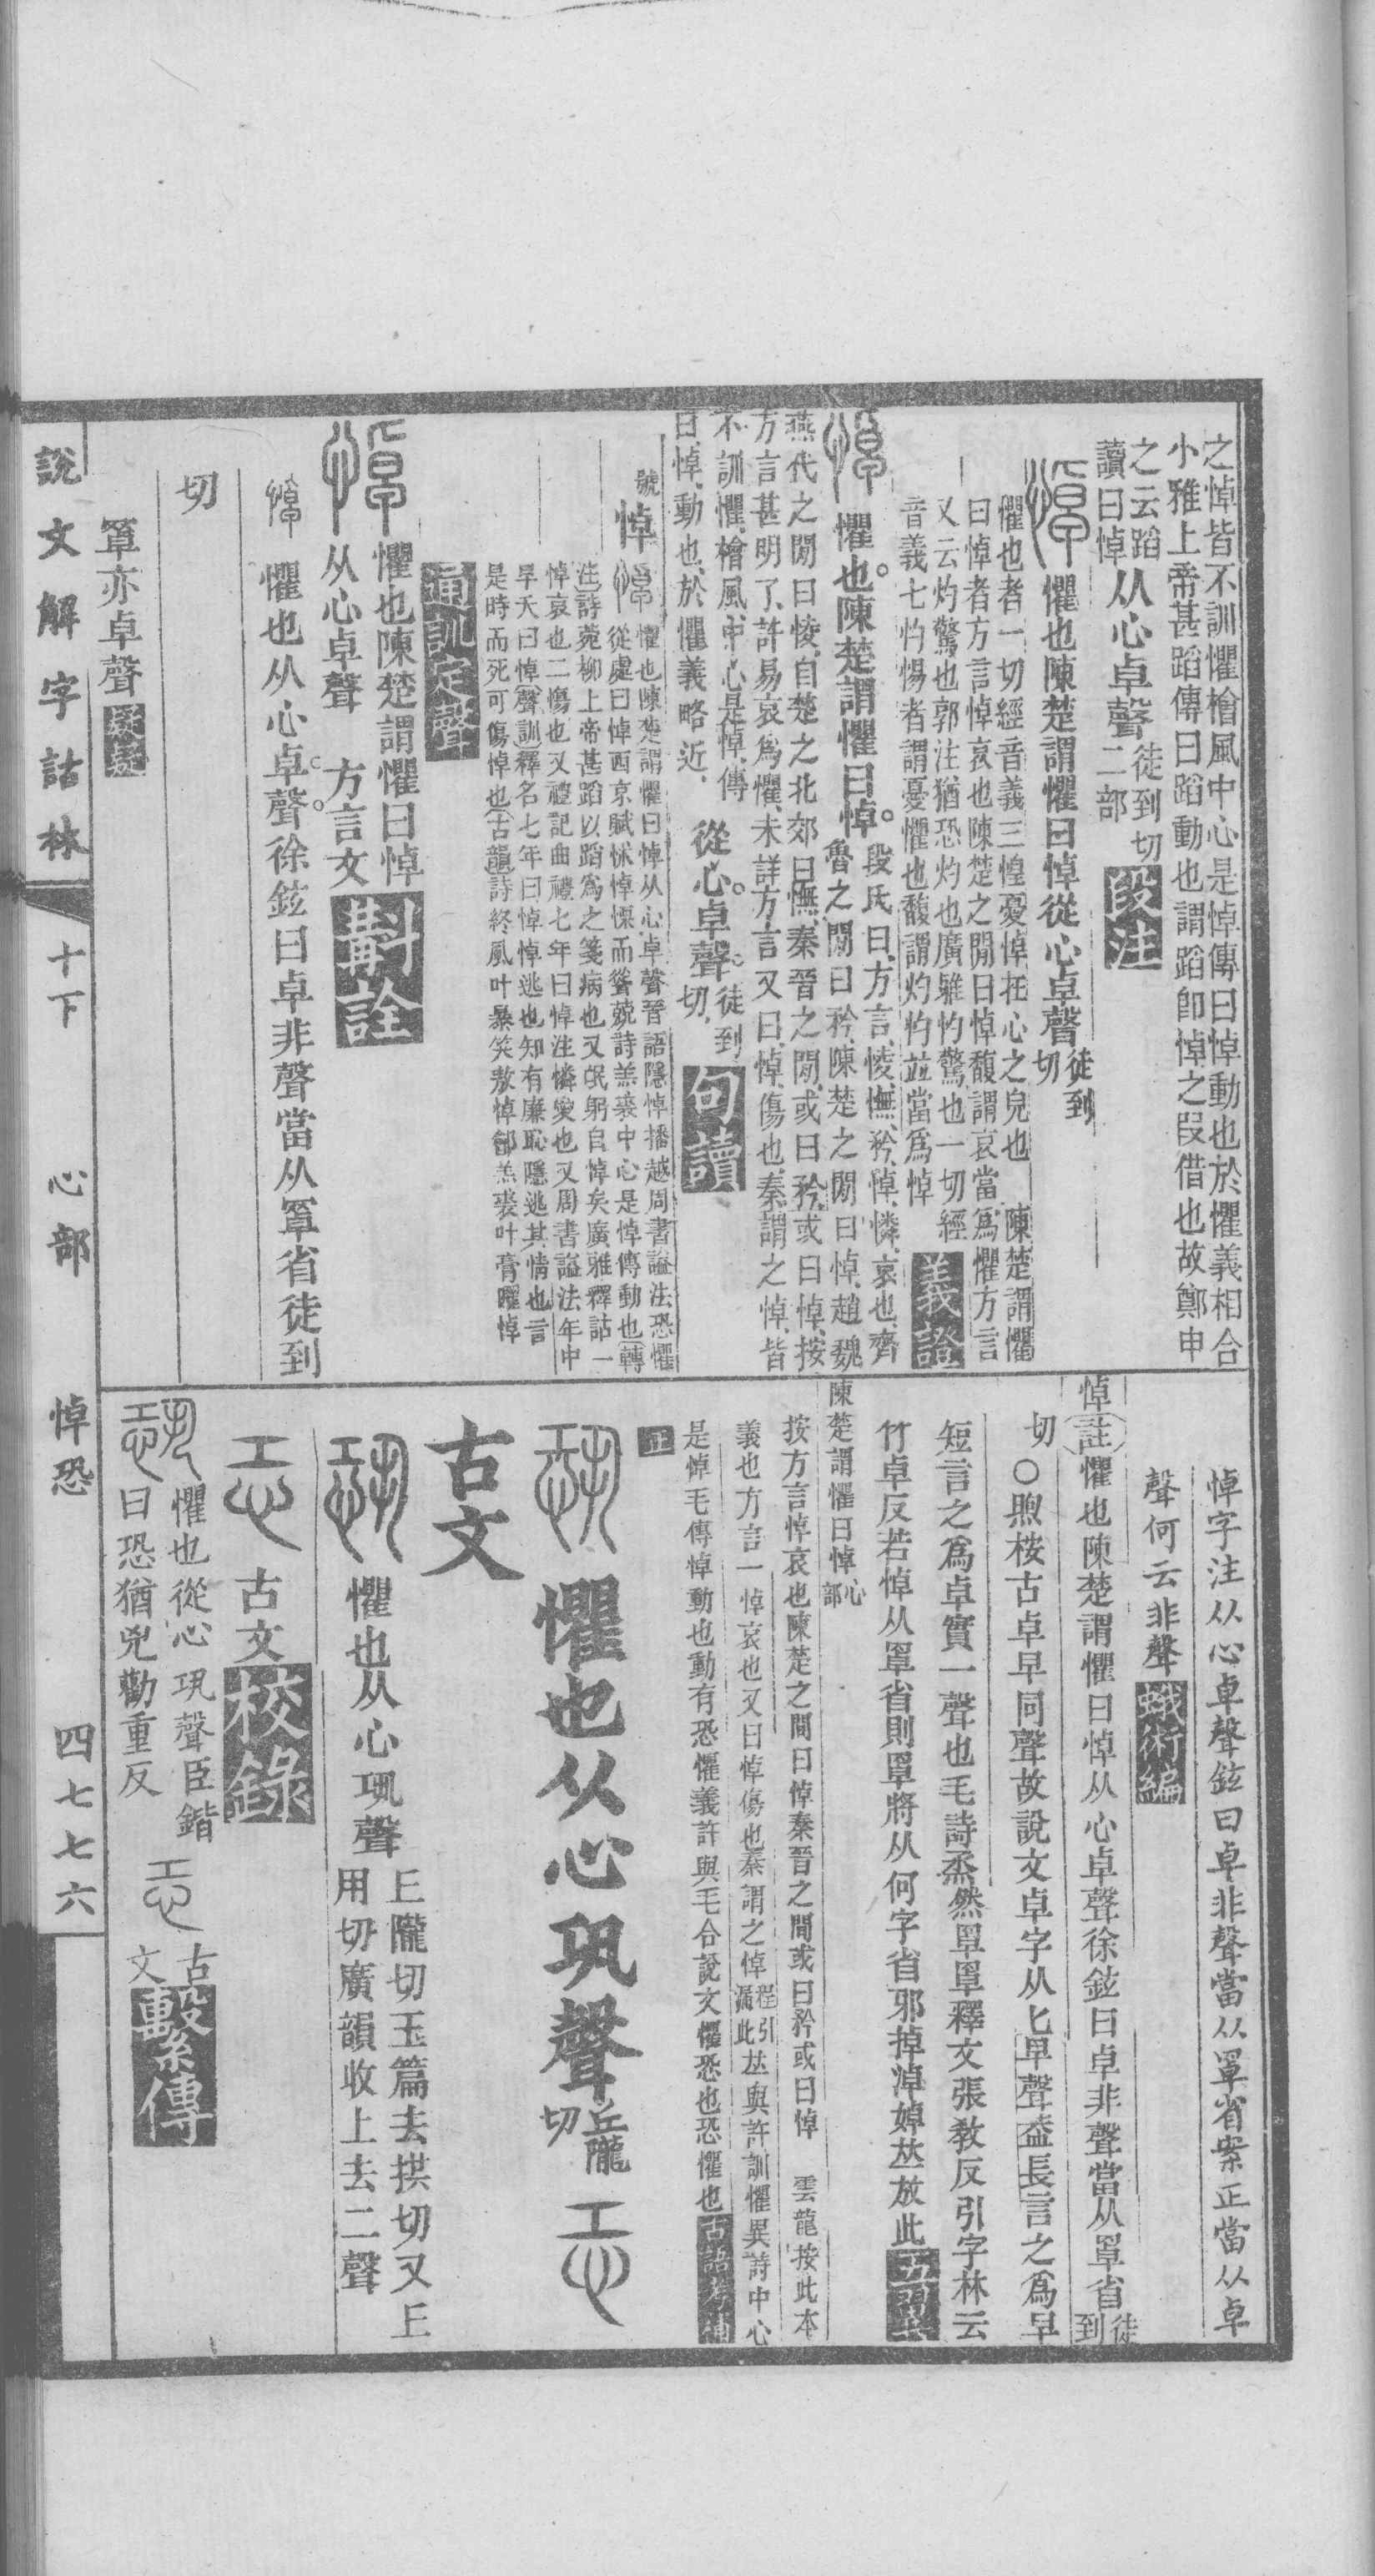 之悼皆不訓懼檜風中心是悼傳曰悼動也於懼義相合
小雅上帝甚蹈傳曰蹈動也謂蹈卽悼之叚借也故鄭申
之云蹈讀曰悼从心卓聲徒到切二部段注
懼也陳楚謂懼曰悼從心卓聲徒到切
懼也者一切經音義三惶憂悼在心之皃也 陳楚謂懼
曰悼者方言悼哀也陳楚之閒曰悼馥謂哀當爲懼方言
又云灼驚也郭注猶恐灼也廣雅灼驚也一切經
音義七灼惕者謂憂懼也馥謂灼灼竝當爲悼義證
懼也陳楚謂懼曰悼段氏曰方言㥄憮矜悼憐哀也齊魯之閒曰矜陳楚之閒曰悼趙魏
燕代之閒曰㥄自楚之北郊曰憮秦晉之閒或曰矜或曰悼按
方言甚明了許易哀爲懼未詳方言又曰悼傷也秦謂之悼皆
不訓懼檜風中心是悼傳曰悼動也於懼義略近從心卓聲徒到切句讀
號悼懼也陳楚謂懼曰悼从心卓聲晉語隱悼播越周書謚法恐懼
從處曰悼西京賦怵悼慄而聳兢詩羔裘中心是悼傳動也轉
注詩菀柳上帝甚蹈以蹈爲之箋病也又氓躬自悼矣廣雅釋詁一
悼哀也二傷也又禮記曲禮七年曰悼注憐愛也又周書謚法年中
早夭曰悼聲訓釋名七年曰悼悼逃也知有廉恥隱逃其情也言
是時而死可傷悼也古韻詩終風叶暴笑敖悼邶羔裘叶膏曜悼
通訓定聲
懼也陳楚謂懼曰悼从心卓聲 方言文斠詮
懼也从心卓聲徐鉉曰卓非聲當从罩省徒到
切
罩亦卓聲繫
悼字注从心卓聲鉉曰卓非聲當从罩省案正當从卓
聲何云非聲蛾術編
悼註懼也陳楚謂懼曰悼从心卓聲徐鉉曰卓非聲當从罩省徒到
切○煦桉古卓早同聲故說文卓字从匕早聲蓋長言之爲早
短言之爲卓實一聲也毛詩烝然罩罩釋文張敎反引字林云
竹卓反若悼从罩省則罩將从何字省邪掉淖婥竝放此五翼
陳楚謂懼曰悼心部
按方言悼哀也陳楚之間曰悼秦晉之間或曰矜或曰悼 雲龍按此本
義也方言一悼哀也又曰悼傷也秦謂之悼程引漏此竝與許訓懼異詩中心
是悼毛傳悼動也動有恐懼義許與毛合說文懼恐也恐懼也古語考補
正
懼也从心巩聲丘隴切
古文
懼也从心巩聲丄隴切玉篇去拱切又丄用切廣韻收上去二聲
古文校錄
懼也從心巩聲臣鍇曰恐猶兇勸重反 古文繫傳
說文解字詁林 十下 心部 悼恐 四七七六